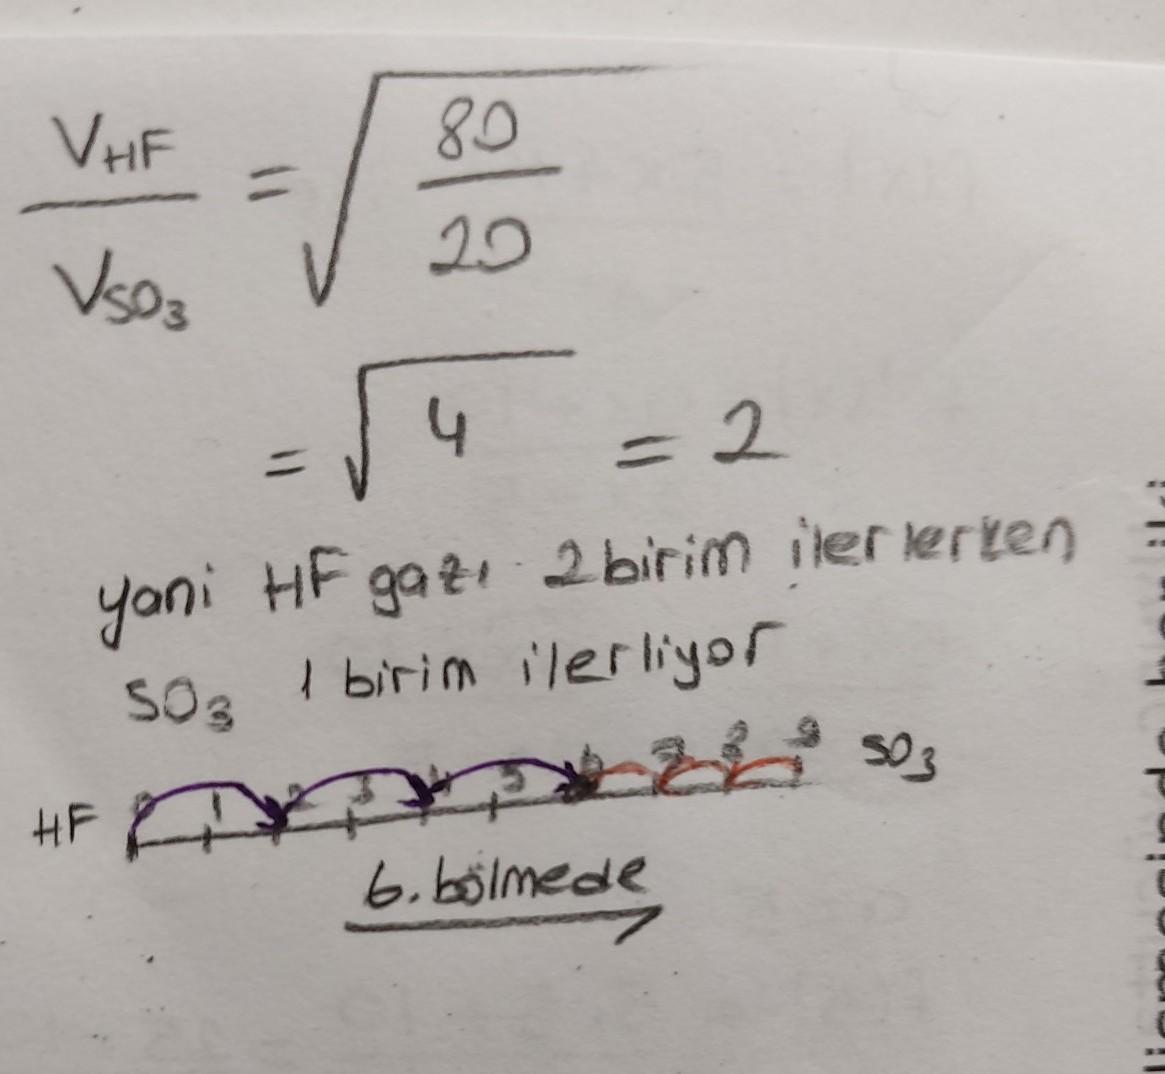 V_HF / V_SO₃ = √(80/20)
= √4 = 2
yani HF gazı 2 birim ilerlerken
SO₃ 1 birim ilerliyor
HF 0 1 2 3 4 5 6 7 8 9 SO₃
6. bölmede